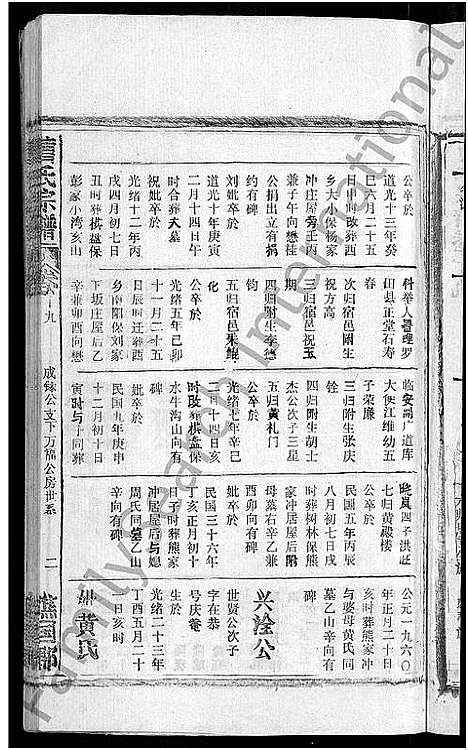 公卒於
道光十三年癸
巳六月二十五
日申时改葬西
乡大小保杨家
冲庄屋旁壬丙
兼子午向懋桂
公捐出立有捐
约有碑
刘妣卒於
道光十年庚寅
二月十四日午
时合葬大墓
祝妣卒於
光绪十二年丙
戌四月初七日
丑时葬棋盘保
彭家小湾亥山
科举人署理罗
田县正堂石寿
春
次归宿邑附生
祝方高
三归宿邑祝玉
期
四归附生李德
钧
五归宿邑朱鲲
化
公卒於
光绪五年己卯
十一月二十五
日辰时迁葬西
乡南阳保刘家
下坂庄屋后乙
辛兼卯酉向懋
临安嗣广道库
大使江维幼五
子荣廉
三归附生张庆
铨
四归附生胡士
杰公次子三星
五归黄礼门
公卒於
光绪七年辛巳
二月十四日亥
时改葬棋盘保
水牛沟山向有
碑
妣卒於
民国九年庚申
十二月初十日
寅时与子同葬
晓岚四子洪
七归黄殿楼
公卒於
民国五年丙辰
八月初七日戌
时葬树林保熊
家冲居屋后附
母墓右辛乙兼
酉卯向有碑
妣卒於
民国三十六年
丁亥正月初十
日子时葬熊家
冲居屋后与媳
周氏同茔乙山
辛向有碑
公元一九六〇
年正月二十日
亥时葬熊家冲
与婆母黄氏同
墓乙山辛向有
碑
兴淦公
世贤公次子
字在恭
号庆菴
生於
光绪二十三年
丁酉五月二十
一日亥时
黄氏
曹氏宗谱
十九
成録公支下万福公房世系
二
谯国郡